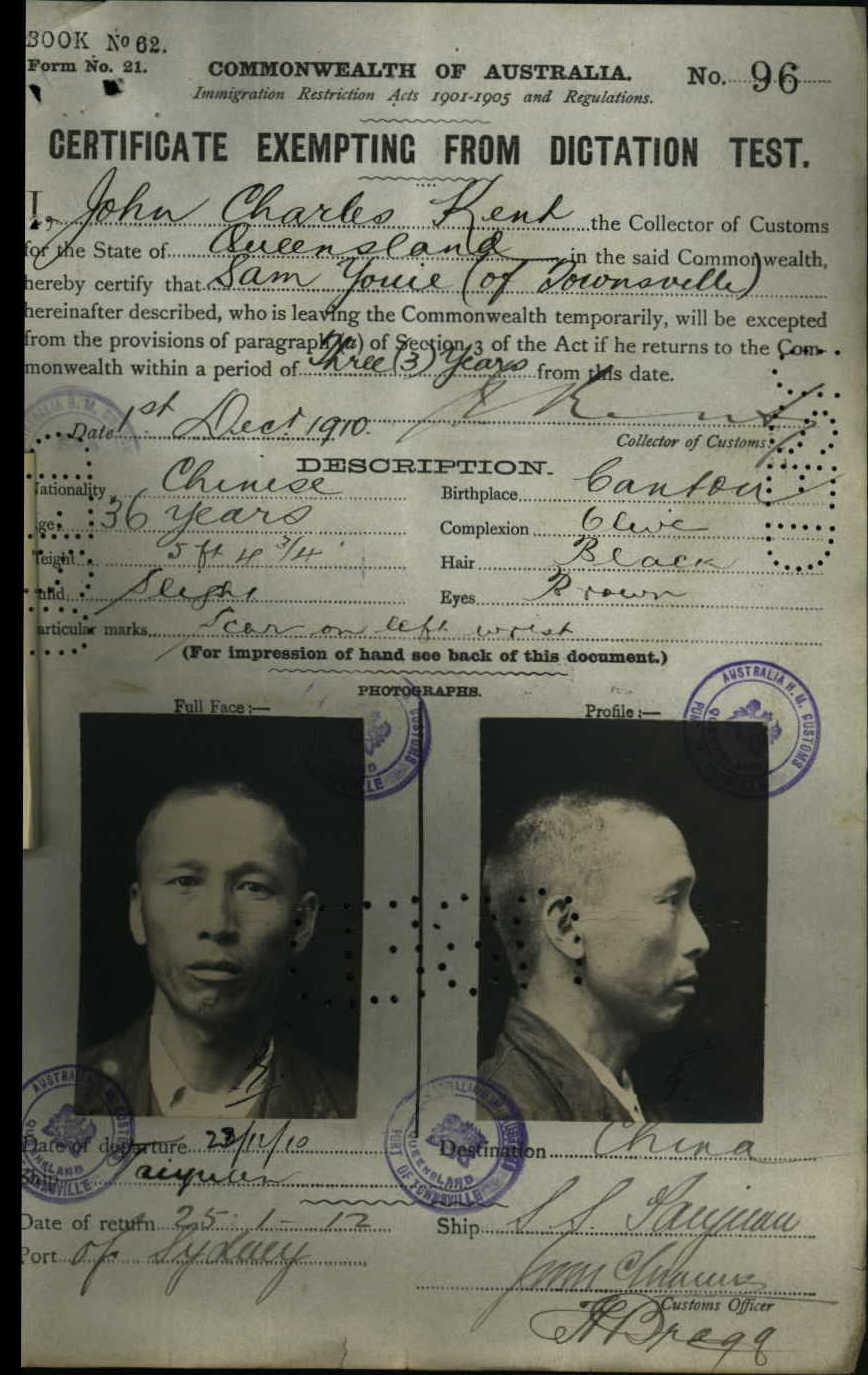 BOOK No 62.
Form No. 21.
COMMONWEALTH OF AUSTRALIA.
No. 96
Immigration Restriction Acts 1901-1905 and Regulations.
CERTIFICATE EXEMPTING FROM DICTATION TEST.
I, John Charles Kent the Collector of Customs
for the State of Queensland in the said Commonwealth,
hereby certify that Sam Youie (of Townsville)
hereinafter described, who is leaving the Commonwealth temporarily, will be excepted
from the provisions of paragraph (a) of Section 3 of the Act if he returns to the Com-
monwealth within a period of three (3) Years from this date.
Date 1st Dect 1910.
Collector of Customs.
DESCRIPTION.
Nationality Chinese Birthplace Canton
Age 36 years Complexion Olive
Height 5 ft 4 3/4 Hair Black
Build Slight Eyes Brown
Particular marks Scar on left wrist
(For impression of hand see back of this document.)
PHOTOGRAPHS.
Full Face :— Profile :—
AUSTRALIA H.M. CUSTOMS
AUSTRALIA
QUEENSLAND
PORT OF TOWNSVILLE
Date of departure 23/12/10 Destination China
Ship Taiyuan
Date of return 25-1-12 Ship S S Taiyuan
Port of Sydney
Customs Officer
H Bragg